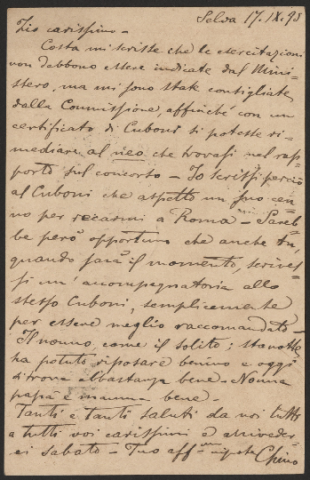 Selva 17.IX.93
Zio carissimo -
Costa mi scrisse che le esercitazioni
non debbono essere indicate dal Mini-
stero, ma mi sono state consigliate
dalla Commissione, affinché con un
certificato di Cuboni si potesse ri-
mediare al neo che trovasi nel rap-
porto sul concorso - Io scrissi perciò
al Cuboni che aspetto un suo cen-
no per recarmi a Roma - Sareb-
be però opportuno che anche tu,
quando sarà il momento, scrives-
si un'accompagnatoria allo
stesso Cuboni, semplicemente
per essere meglio raccomandato -
Il nonno, come il solito; stanotte
ha potuto riposare benino e oggi
si trova abbastanza bene - Nonna
papà e mamma bene -
Tanti e tanti saluti da noi tutti
a tutti voi carissimi ed arriveder-
ci sabato - Tuo aff.mo nipote Chino